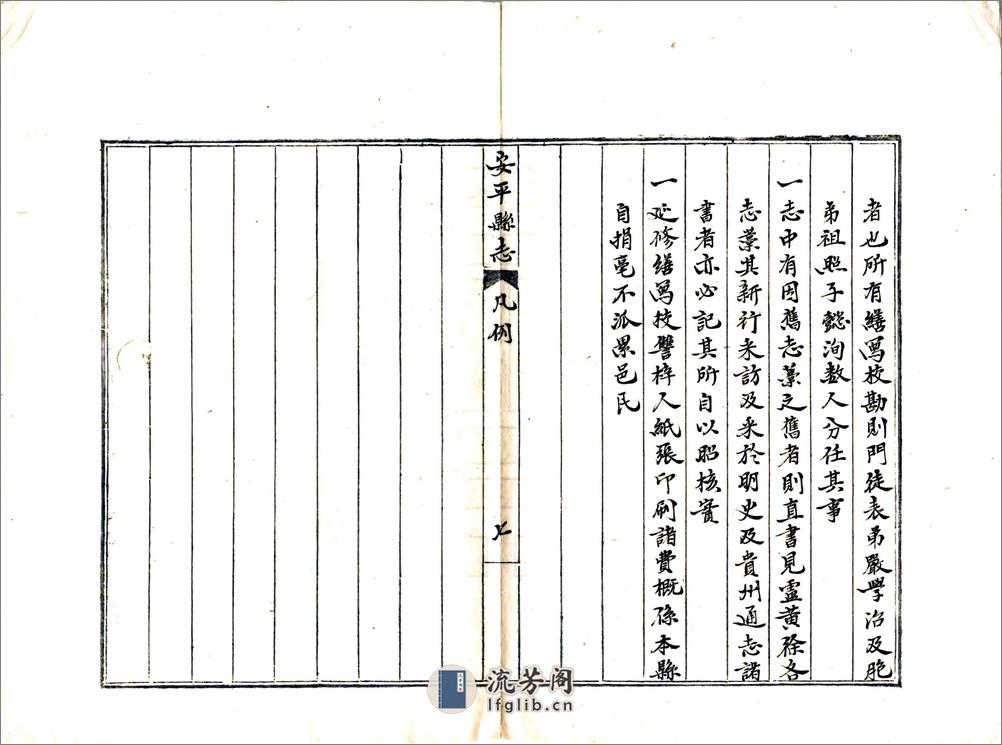 者也所有繕寫校勘則門徒表弟嚴學治及胞
弟祖照子懿洵數人分任其事
一志中有因舊志藁之舊者則直書見靈黃徐各
志藁其新行采訪及采於明史及貴州通志諸
書者亦必記其所自以昭核實
一延修繕寫校讐梓人紙張印刷諸費概係本縣
自捐毫不派累邑民
安平縣志 凡例 七
流芳阁
lfglib.cn